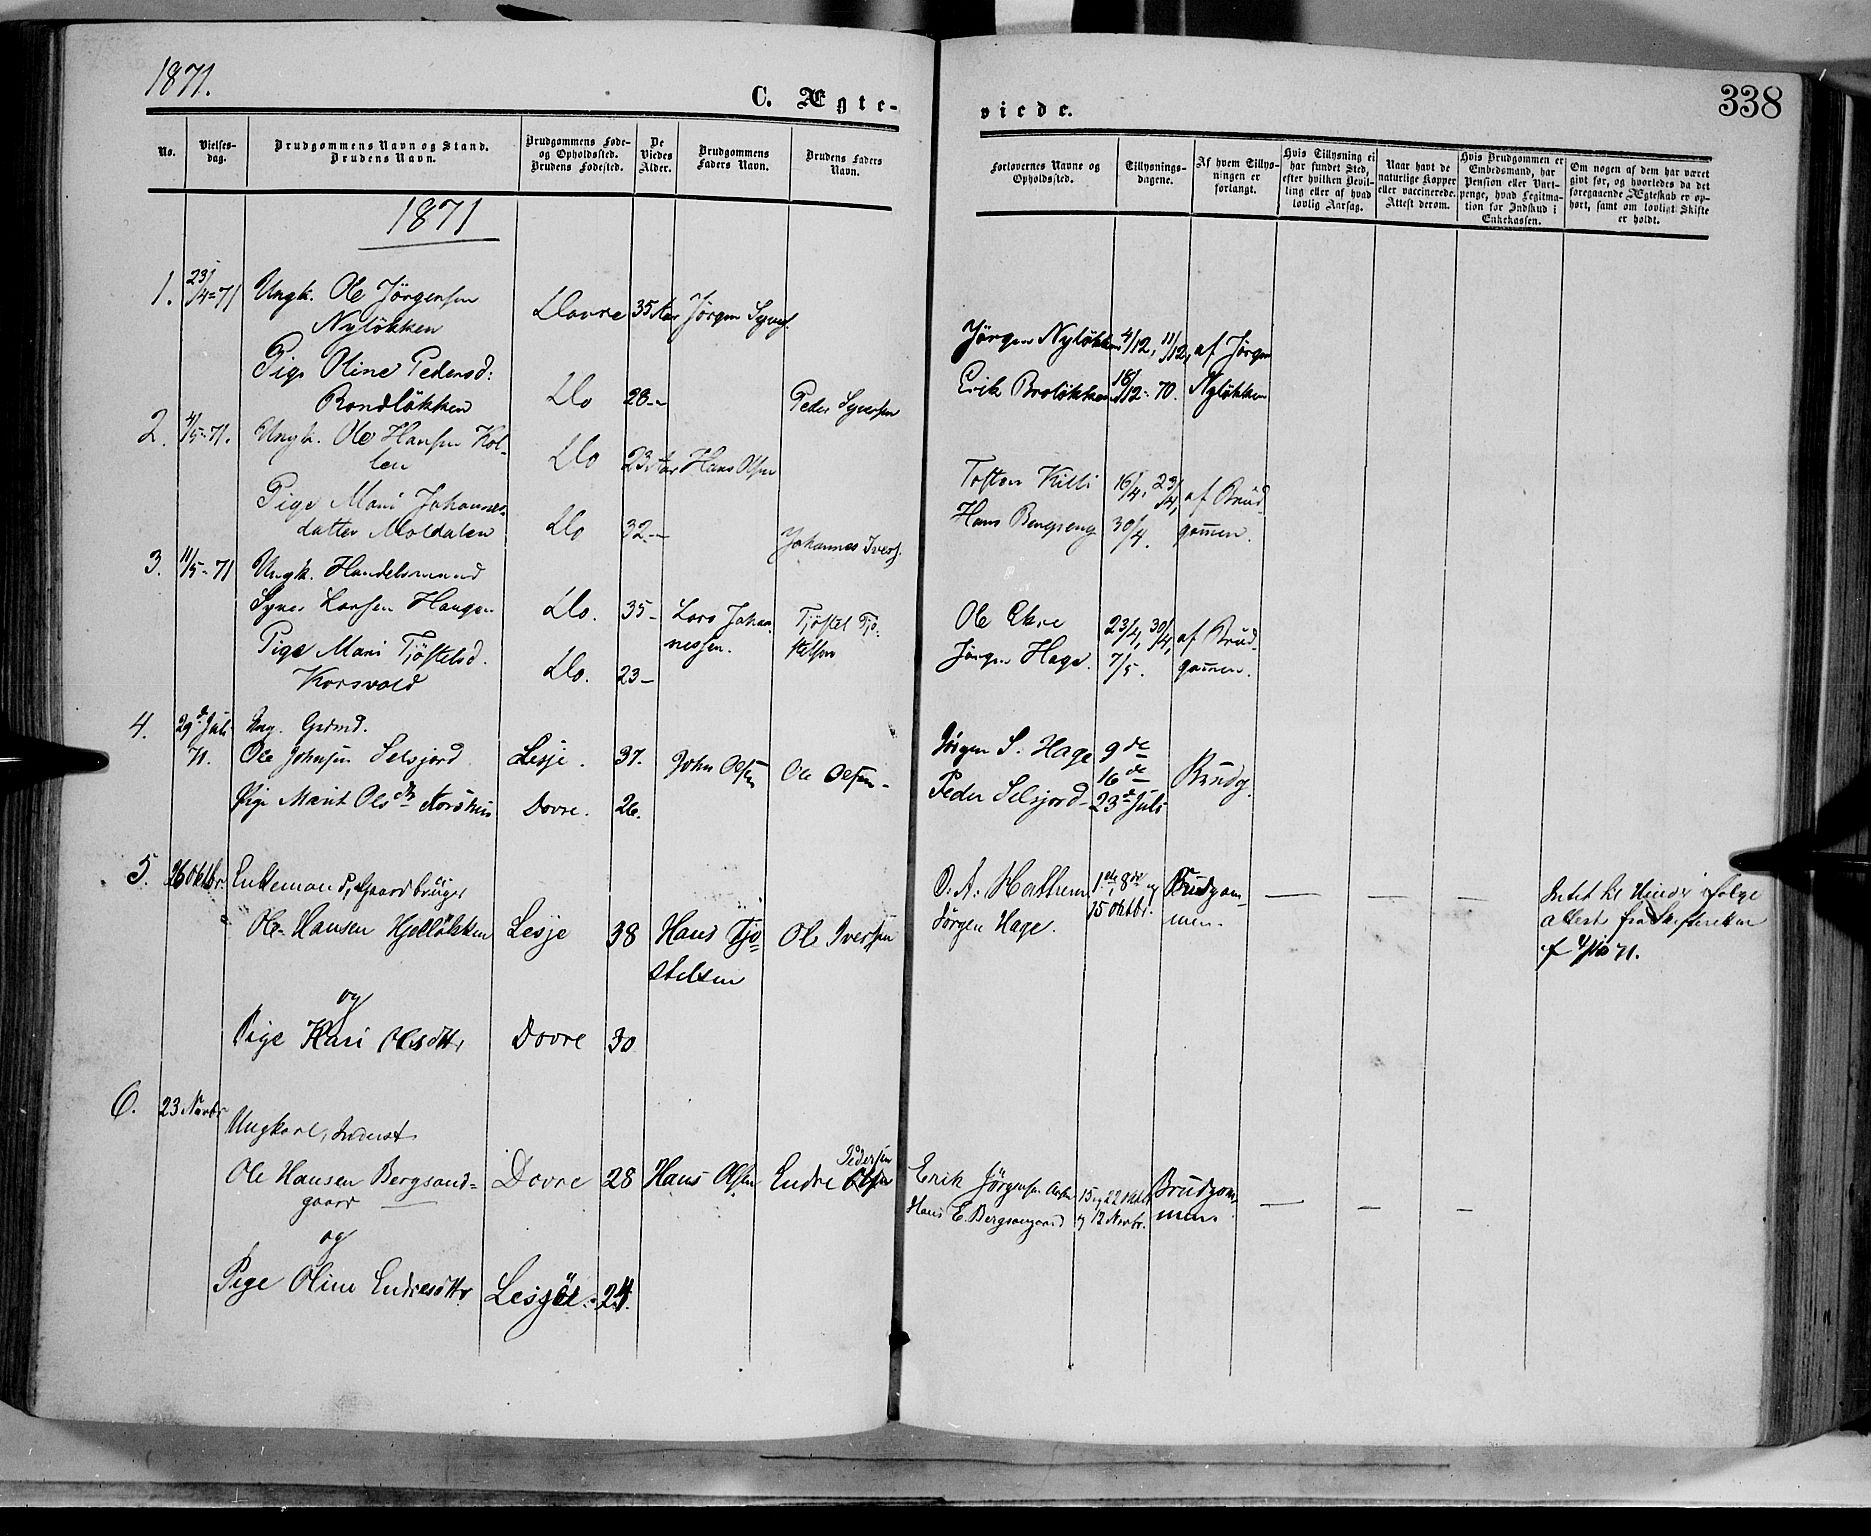 1871.
C. Ægte-
viede.
338
No.
Vielses-
dag.
Brudgommens Navn og Stand.
Brudens Navn.
Brudgommens Føde-
og Opholdssted.
Brudens Fødested.
De
Viedes
Alder.
Brudgommens
Faders Navn.
Brudens Faders
Navn.
Forlovernes Navne og
Opholdssted.
Tillysnings-
dagene.
Af hvem Tillys-
ningen er
forlangt.
Hvis Tillysning ei
har fundet Sted,
efter hvilken Bevil-
ling eller af hvad
lovlig Aarsag.
Naar havt de
naturlige Kopper
eller vaccinerede.
Attest derom.
Hvis Brudgommen er
Embedsmand, har
Pension eller Vart-
penge, hvad Legitima-
tion for Indskud i
Enkekassen.
Om nogen af dem har været
givt før, og hvorledes da det
foregaaende Ægteskab er op-
hørt, samt om lovligt Skifte
er holdt.
1871
1. 23/4-71 Ungk. Ole Jörgensen
Nylökken
Dovre 35 Aar Jörgen
Pige Oline Pedersd:
Rondlökken
Do 28 - Peder
Jörgen Nylökken 4/12, 11/12, af Jörgen
Erik Brolökken 18/12-70. Nylökken
2. 4/5-71. Ungk. Ole Hansen Kol-
len
Do 23 Aar Hans Olsen
Pige Mari Johannes-
datter Moldalen
Do 32 - Johannes Ivers.
Tosten Killi 16/4, 23/4, af Brud-
Hans Bergseng 30/4. gommen.
3. 11/5-71 Ungk. Handelsmand
Syver Larsen Haugen
Do. 35 - Lars Johan-
nessen.
Tjöstel Tjö-
stelsen
Pige Mari Tjöstelsd.
Korsvold
Do. 23 -
Ole Ekre 23/4, 30/4, af Brud-
Jörgen Hage. 7/5. gommen.
4. 29de Juli
71.
Ung. Grdmd.
Ole Johnsen Selsjord Lesje. 37. John Olsen Ole Olsen -
Pige Marit Olsdtr Dovre. 26.
Jörgen S. Hage 9de
16de
Peder Selsjord 23de Juli
Brudg.
5. 26 Oktbr. Enkemand, Gaardbruger
Ole Hansen Hjellökken Lesje 38 Hans Tjö-
stelsen
Ole Iversen
og
Pige Kari Olsdtr Dovre 30
O. A. Hattrem 1ste, 8de og Brudgom-
Jörgen Hage. 15 Oktbr. men.
— — —
Intet til Hinder ifölge
attest fra Skifteretten
af 4/10 71.
6. 23 Novbr
Ungkarl, Inderst
Ole Hansen Bergsand-
gaard
Dovre 28 Hans Olsen Endre Pedersen
og
Pige Oline Endresdtr Lesje 24.
Erik Jörgensen 15 og 22 Oktb Brudgom-
Hans E. Bergsangaard og 12 Novbr. men.
— — —